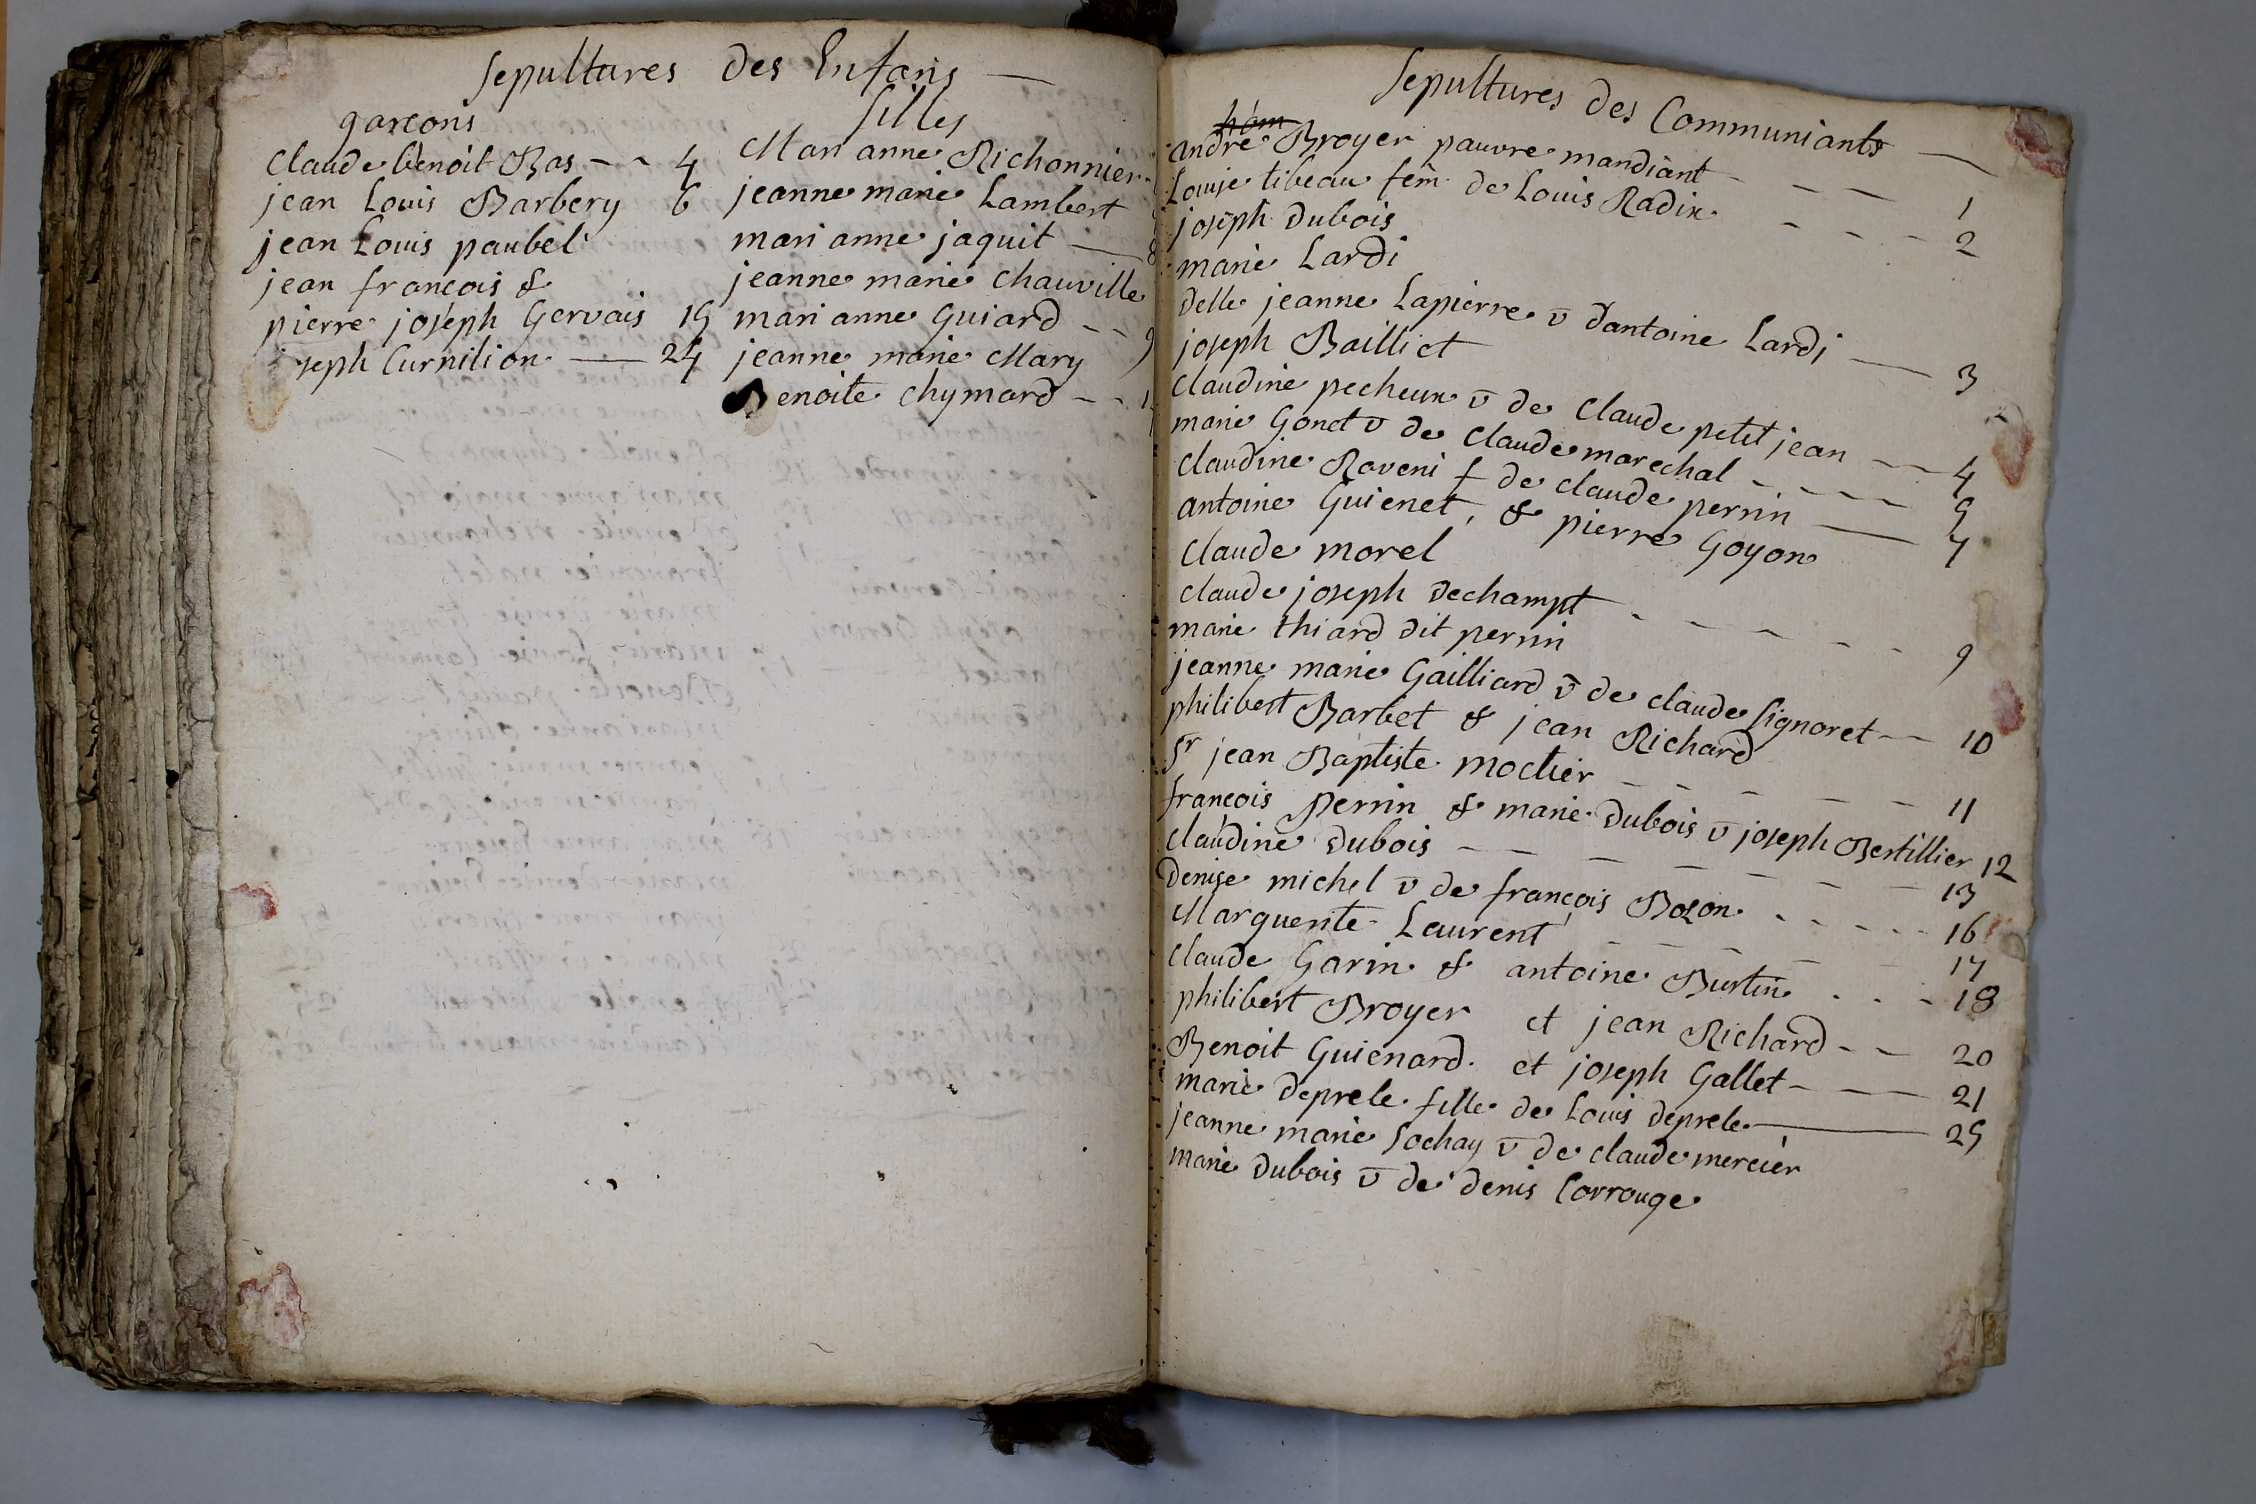 Sepultures des Enfans
garcons
Claude benoit Bas - - 4
jean Louis Barbery 6
jean Louis paubel
jean francois &
pierre joseph Gervais 15
joseph Curnilion 24
filles
Marianne Richonnier
jeanne marie Lambert
marianne jaquit 8
jeanne marie Chauville
marianne Guiard - - 9
jeanne marie Mary
Benoite Chymard - -
Sepultures des Communiants
andré Broyer pauvre mandiant - - - 1
Louise tibeau fem de Louis Radix - - - 2
joseph Dubois
marie Lardi
delle jeanne Lapierre v̄ dantoine Lardi 3
joseph Bailliet
Claudine pecheux v̄ de Claude petit jean - - 4
marie Gonet v̄ de Claude marechal - - - - 5
Claudine Raveni f de claude perrin 7
antoine Guienet, & pierre Goyon
Claude morel
Claude joseph Dechampt - - - - - - 9
marie thiard dit perrin
jeanne marie Gailliard v̄ de claude Signoret - - 10
philibert Barbet & jean Richard
Sr jean Baptiste moctier - - - - - - 11
francois perrin & marie Dubois v̄ joseph Bertillier 12
Claudine Dubois - - - - - - - - 13
Denise michel v̄ de françois Bozon - - - - - 16
Marguerite Laurent - - - - - - 17
Claude Garin & antoine Burtin - - - 18
philibert Broyer et jean Richard - - 20
Benoit Guienard. et joseph Gallet - - - 21
marie Deprele fille de Louis deprele 25
jeanne marie Sochay v̄ de claude mercier
marie Dubois v̄ de denis Corrouge